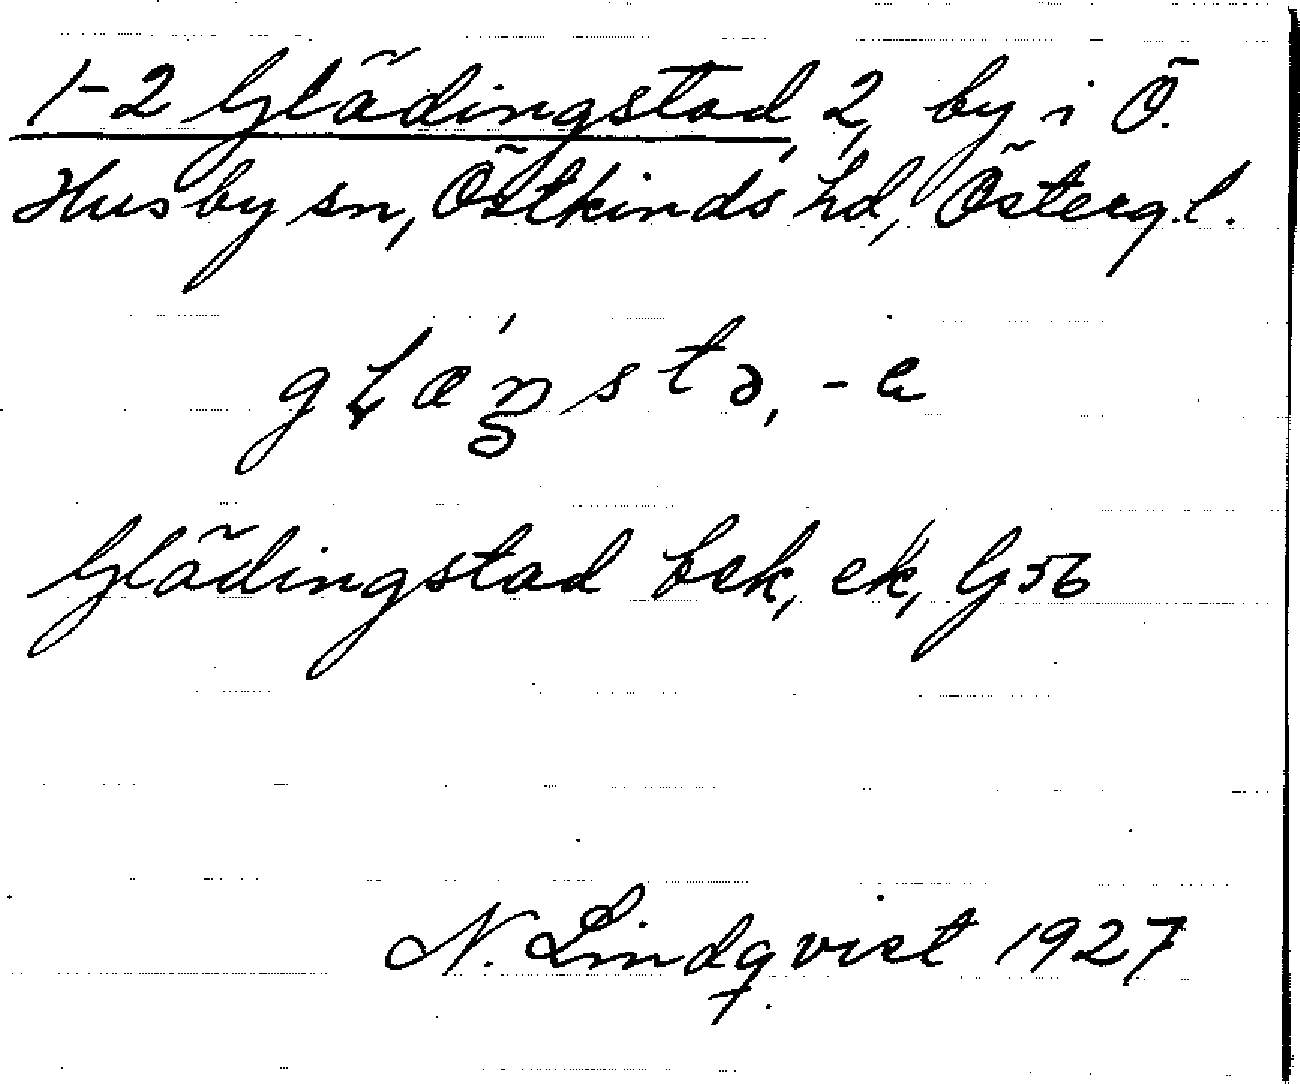 1-2 Glädingstad, 2, by i Ö.
Husby sn, Östkinds hd, Österg.l.
Glädingstad bek, ek, G 56
N. Lindqvist 1927